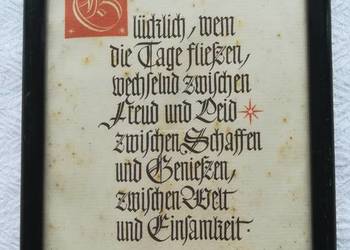 Glücklich, wem
die Tage fließen,
wechselnd zwischen
Freud und Leid
zwischen Schaffen
und Genießen,
zwischen Welt
und Einsamkeit.